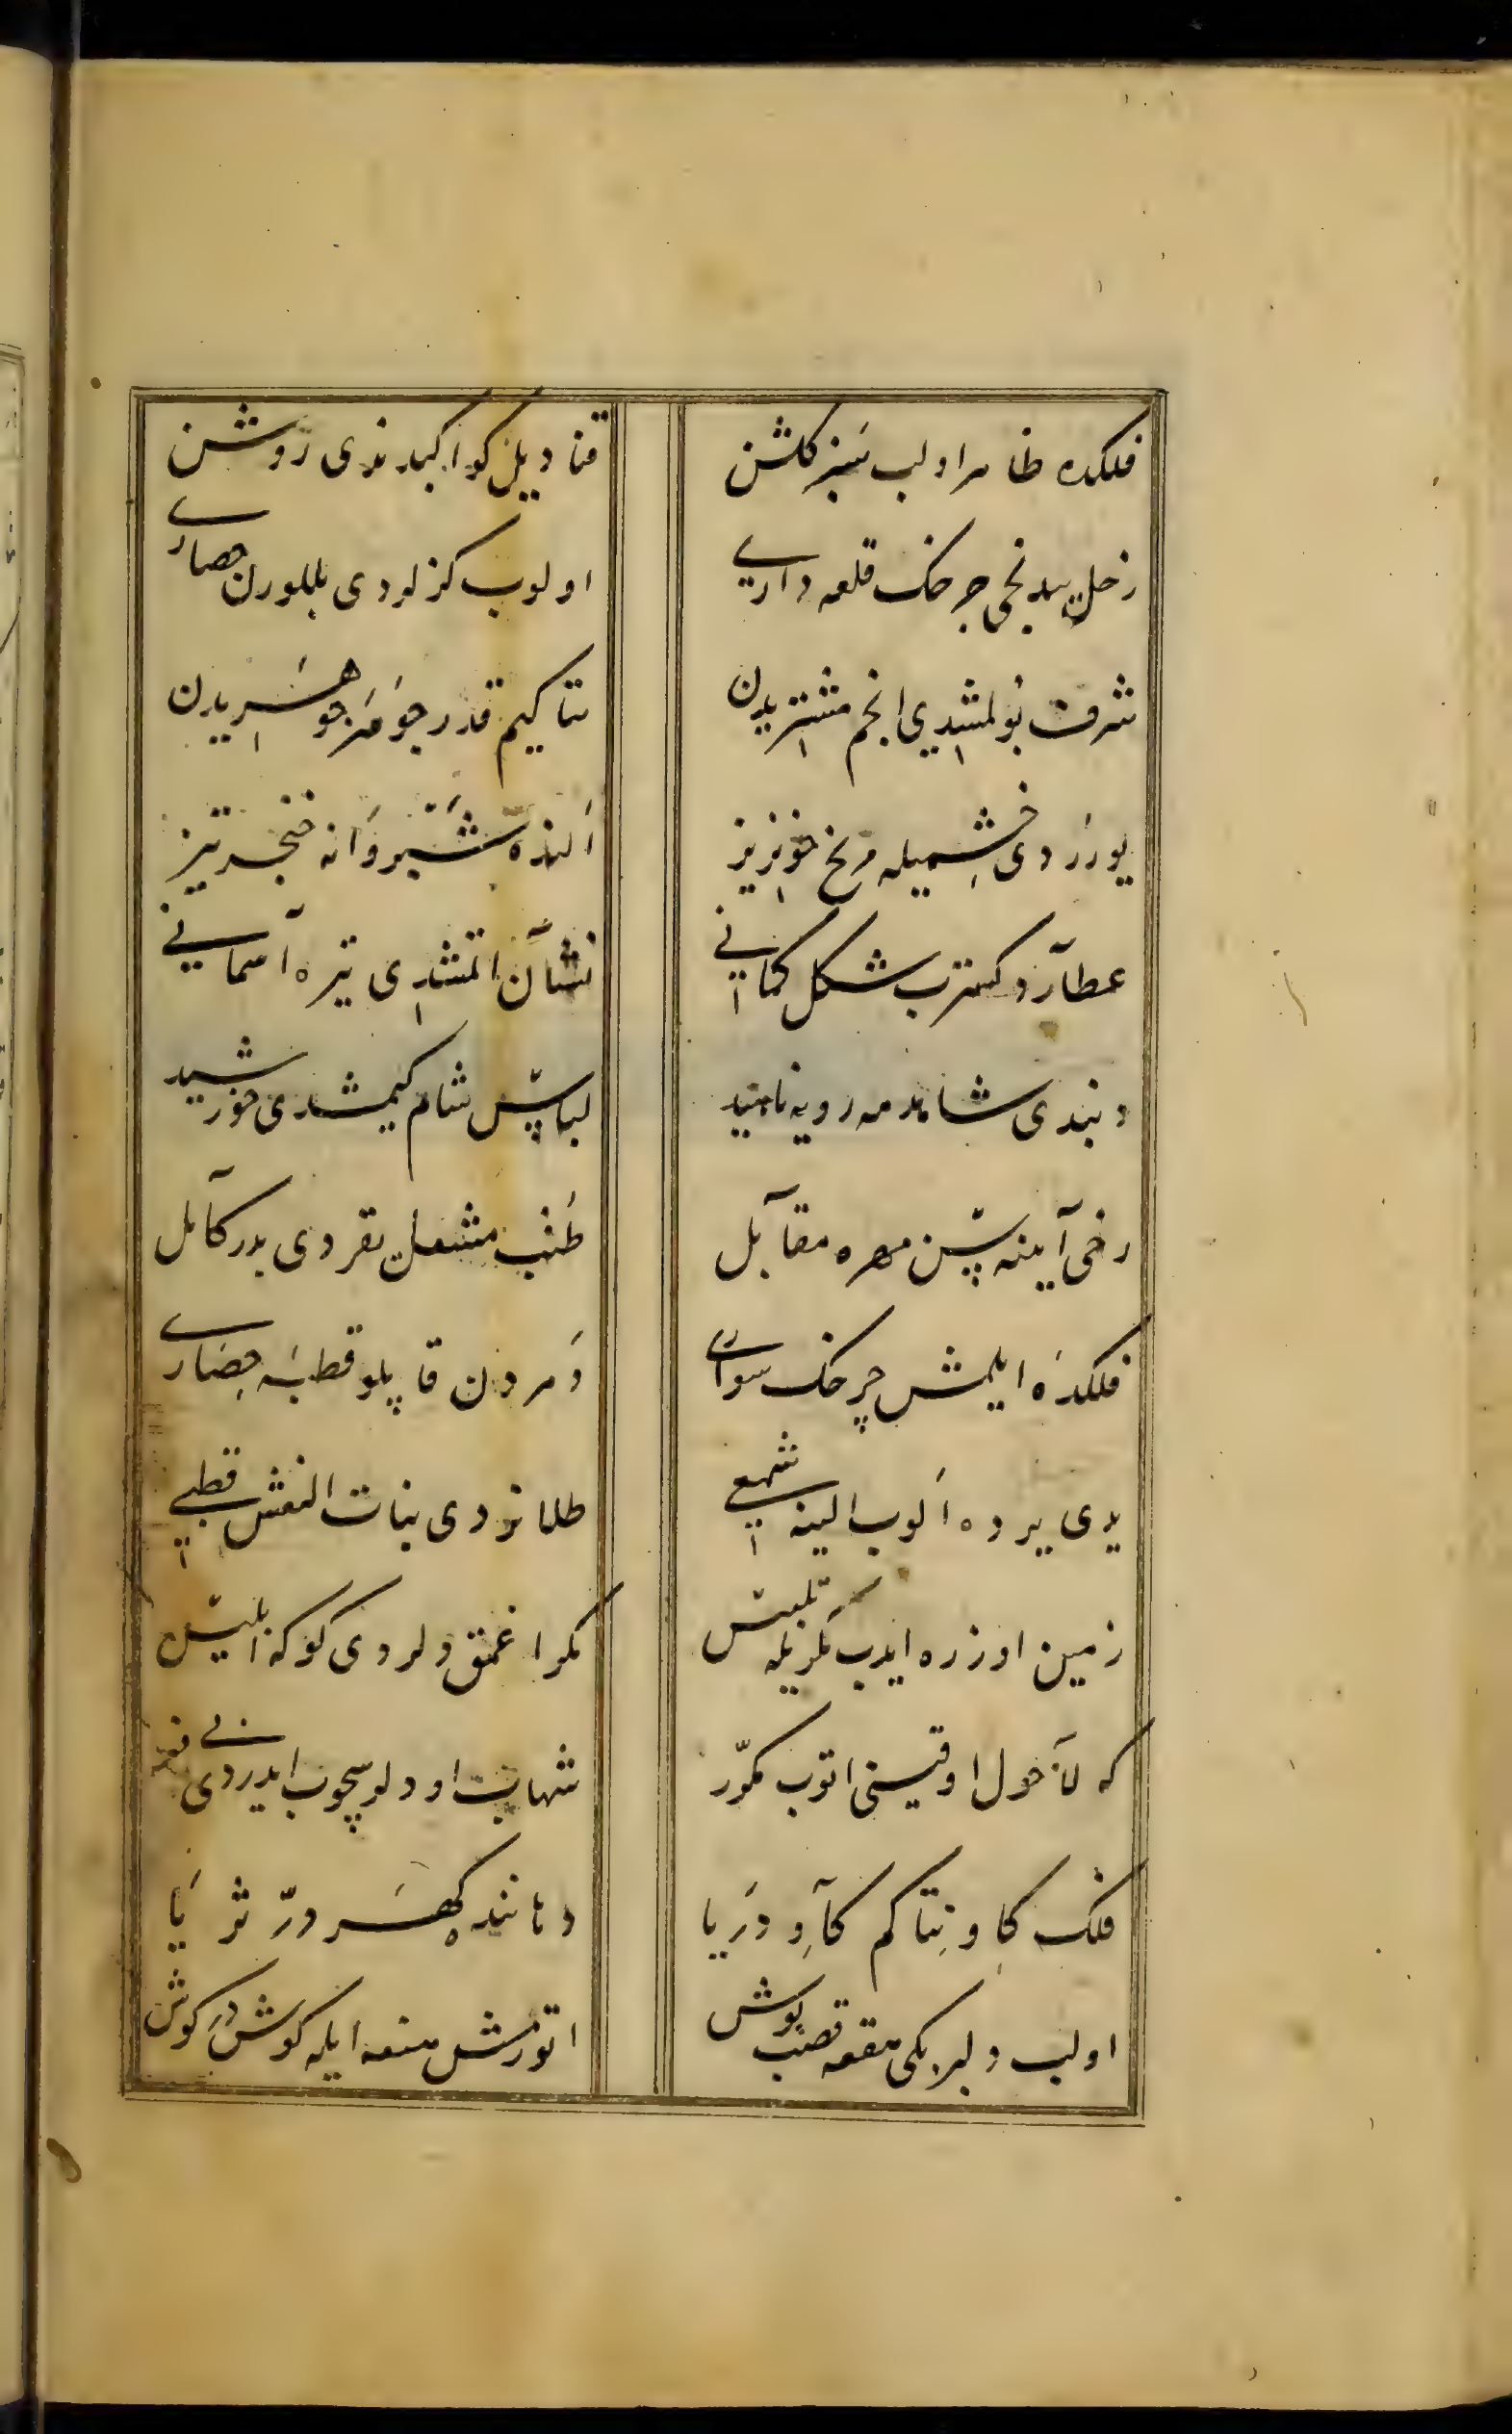 فلکده ظاهر اولب سبز کلشن قنادیل کواکبدندی روشن
زحل یدنجی چرخک قلعه داری اولوب کزلردی بللوردن حصاری
شرف بولمشدی انجم مشتریدن نتاکیم قدر جوهر جوهریدن
یورردی خشمیله مریخ خونریز النده شیروانه خنجر تیز
عطارد کسترب شکل کمانی نشان اتمشدی تیره آسمانی
دنبدی شاهد مه رویه ناهید لباس شام کیمشدی خورشید
رخی آینه سن مهره مقابل طتب مشعل یقردی بدر کامل
فلکده ایلمش چرخک سواری دمردن قاپلو قطبه حصاری
یدی یرده الوب الینه شمعی طلانردی بنات النعش قطبی
زمین اوزره ایدب مکریله تلبیس مکر اغمق دلردی کوکه ابلیس
که لاحول اوقیسنی اتوب مکرر شهابت اودلو سچوب ایدردی
فلک کاو نتاکم کاو دریا دنانده کهر در ثریا
اولب دلبر بکی مقعه قصب پوش اتورمش منعه ایله کوش در کوش